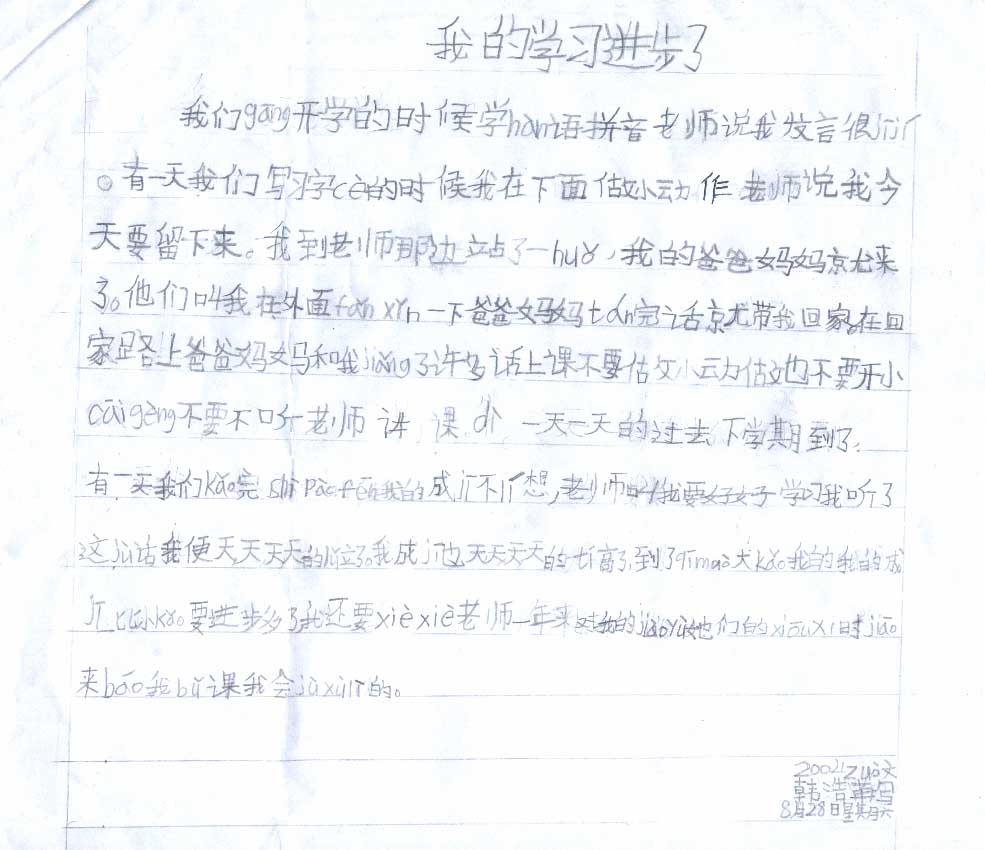 我的学习进步了
我们gāng开学的时候学hàn语拼音老师说我发言很jījí
。有一天我们写习字cè的时候我在下面做小动作老师说我今
天要留下来。我到老师那边立占了一huǒ,我的爸爸妈妈京尤来
了。他们叫我在外面fǎn xǐn一下爸爸妈妈tán完话京尤带我回家在回
家路上爸爸妈妈和哦jiǎng了许多话上课不要做小动做也不要开小
cāi gèng不要不听老师讲课 一天一天的过去下学期到了.
有一天我们kǎo完shì 我的成jī不lǐ想,老师叫我要好好学习我听了
这jù话我便天天天天的 了。我成jī也天天天天的tí高了到了qīmaò大kǎo我的我的成
jī比小kǎo要进步多了我还要xièxiè老师一年来对我的jiàoyù他们的xiōuxi时jiān
来bāo我bǔ课我会jùxùlì的。
2004zuò文
韩浩 写
8月28日星期六